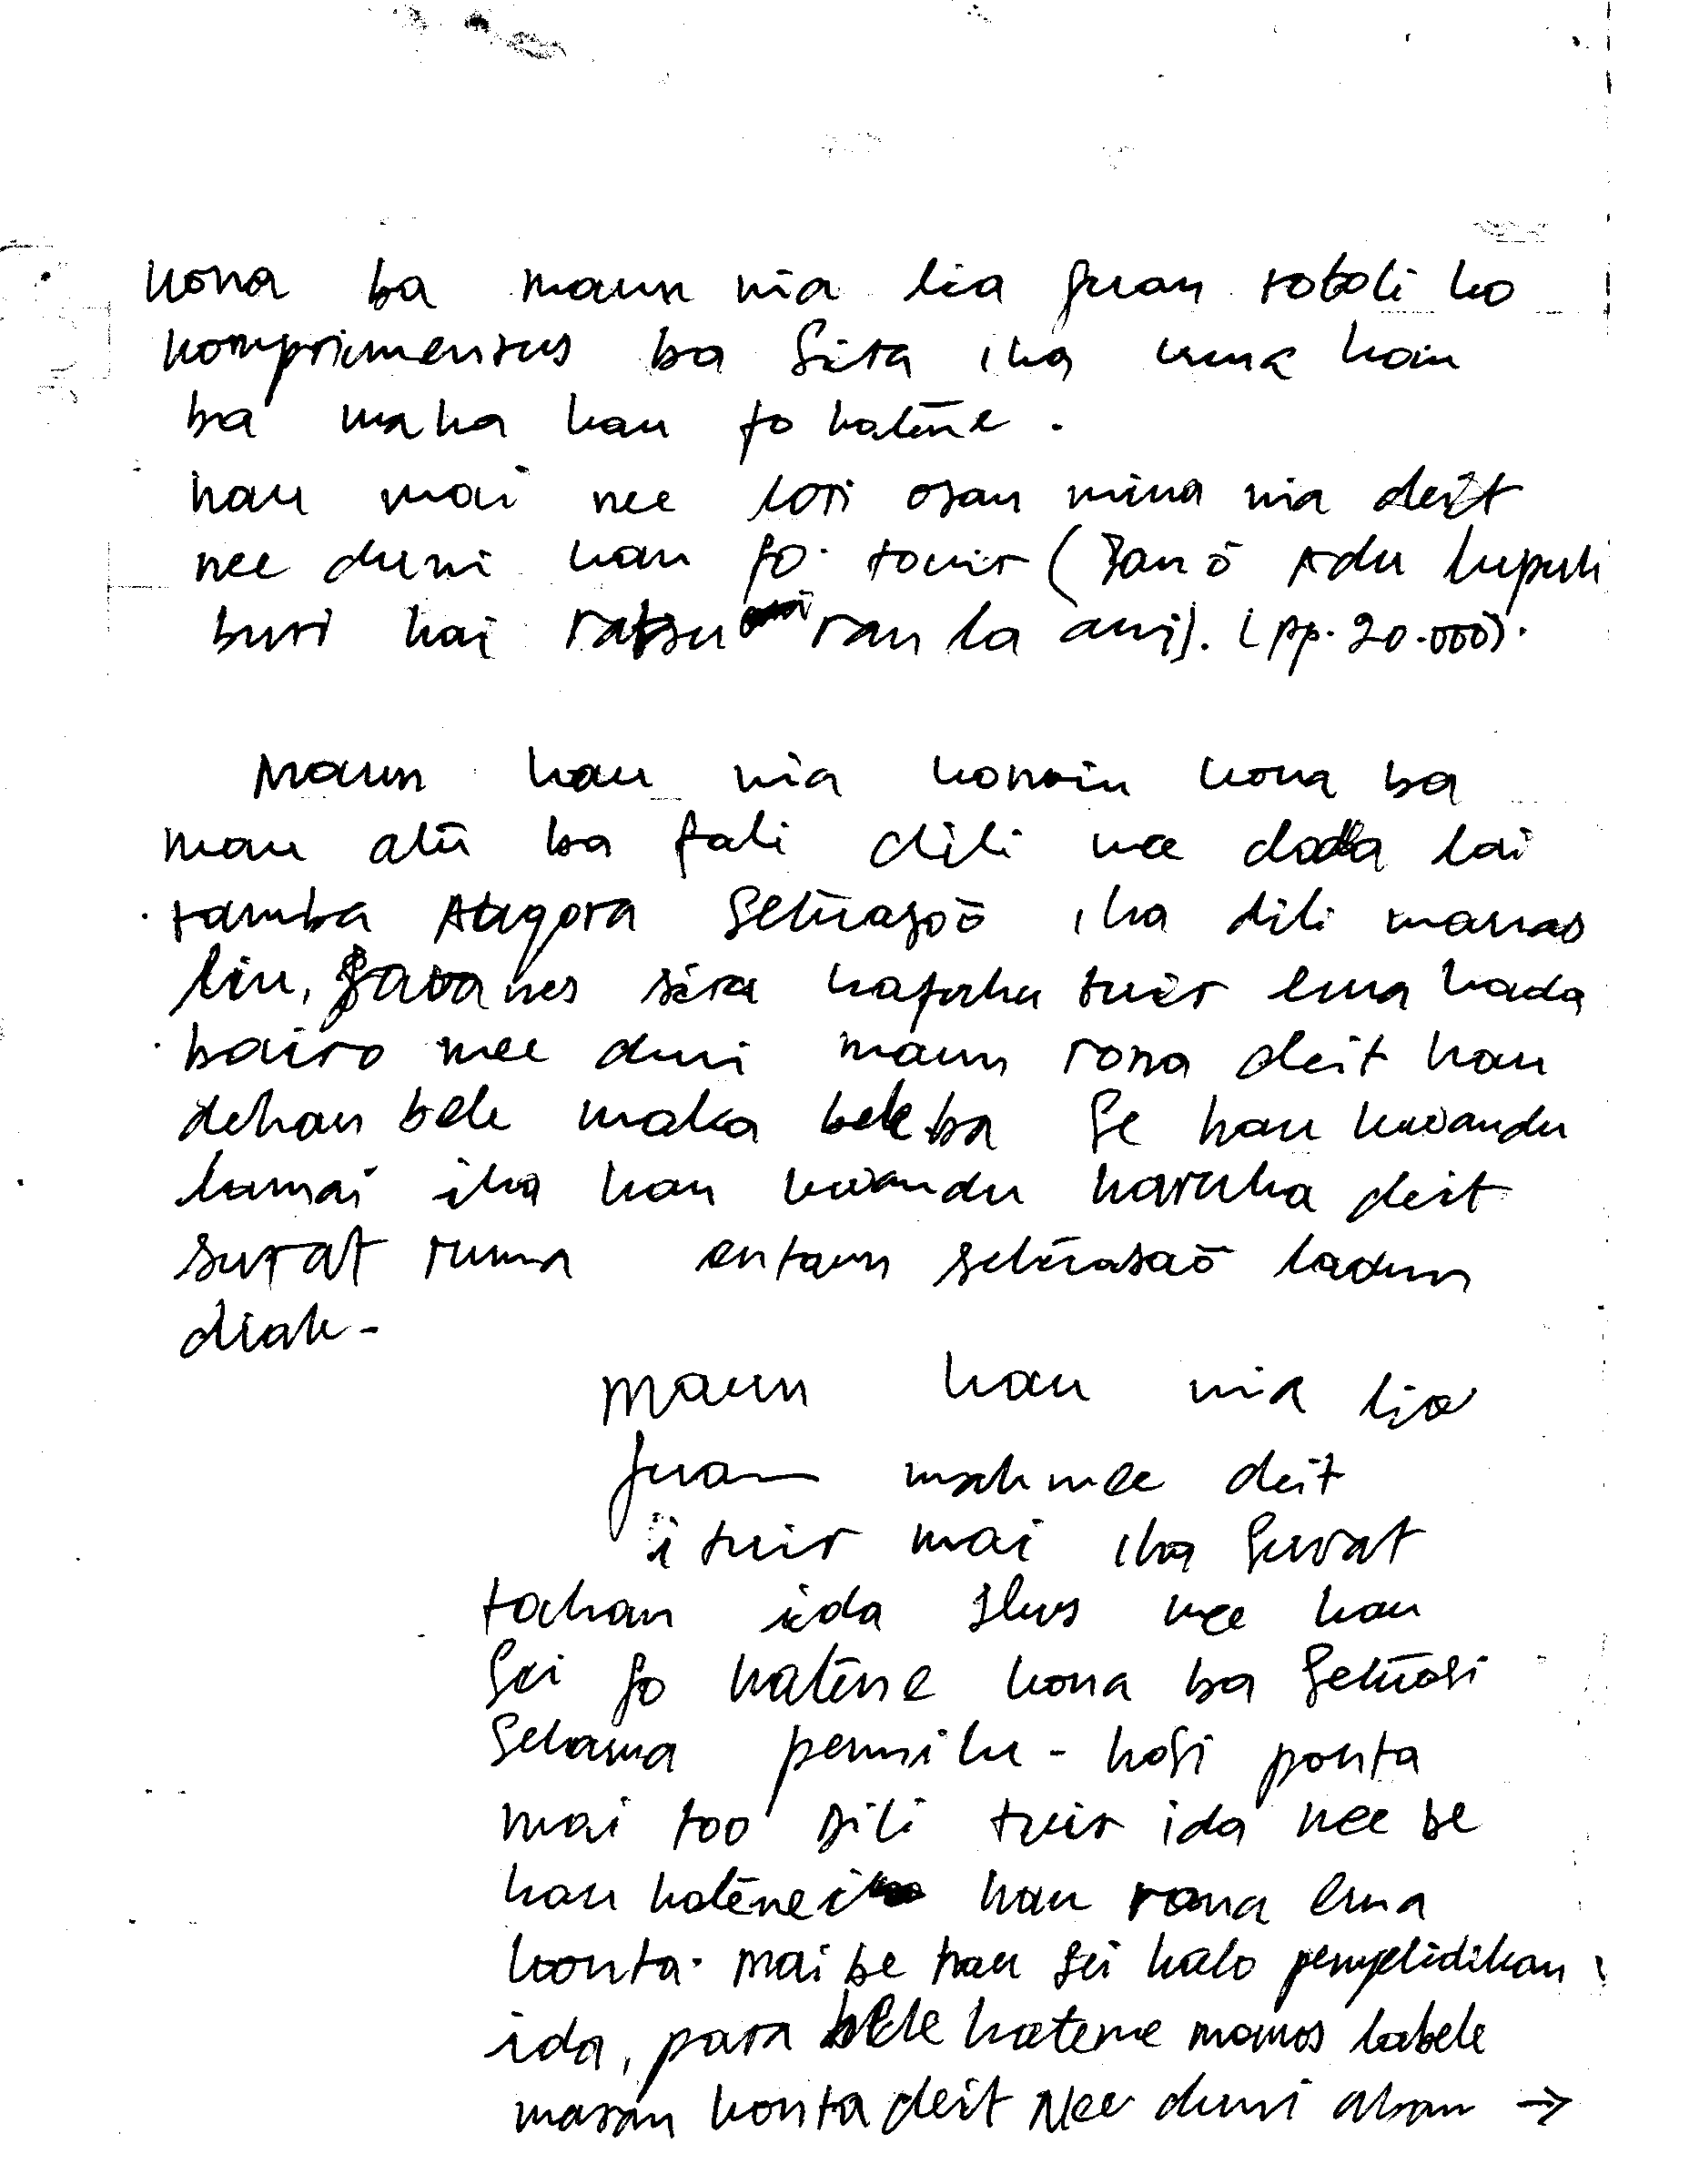 kona ba maun nia lia fuan totoli ho
komprimentus ba Sira iha uma hein
ba maka hau fo hatēne.
hau mai nee lori osan mina nia deit
nee duni hau fo tomir (Zanō Adu lupuli
buri hai ratsu ran la ani). (pp. 20.000).
Maun hau nia honoin kona ba
mau atū ba fali dili nee dada lai
tamba Atugora Setūasoō iha dili manas
liu, Javanes sira hafuhu tuir ema hada
bairo nee duni maun rona deit hau
dehan bele maka bele ba Se hau kuandu
lamai iha hau kuandu haruka deit
surat ruma entaun setūasaō ladun
diak-
Maun hau nia lia
fuan mak nee deit
i tuir mai iha Surat
tahan ida Skus nee hau
Sei fo hatēne kona ba Setūasi
Selama pemilu - hosi ponta
mai too Dili tuir ida nee be
hau hatēne hau rona ema
konta. mai be hau Sei halo penyelidikan
ida, para bele hatene momos labele
masan konta deit Nee duni aban →